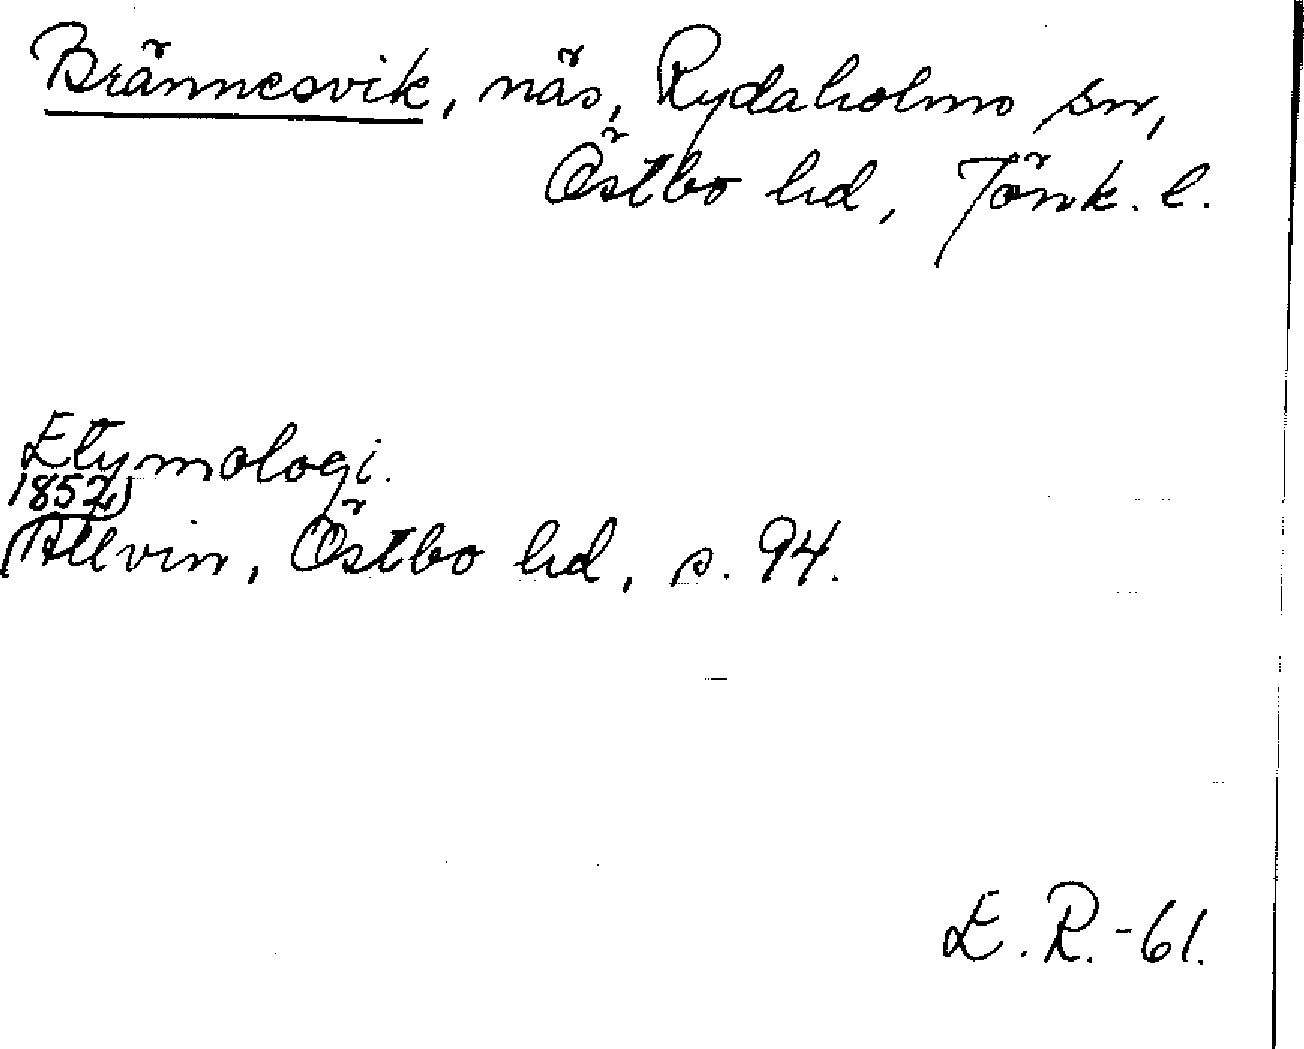 Brännesvik, näs, Rydaholms sn,
Östbo hd, Jönk. l.
Etymologi.
1852
Allvin, Östbo hd, s. 94.
E. R. -61.